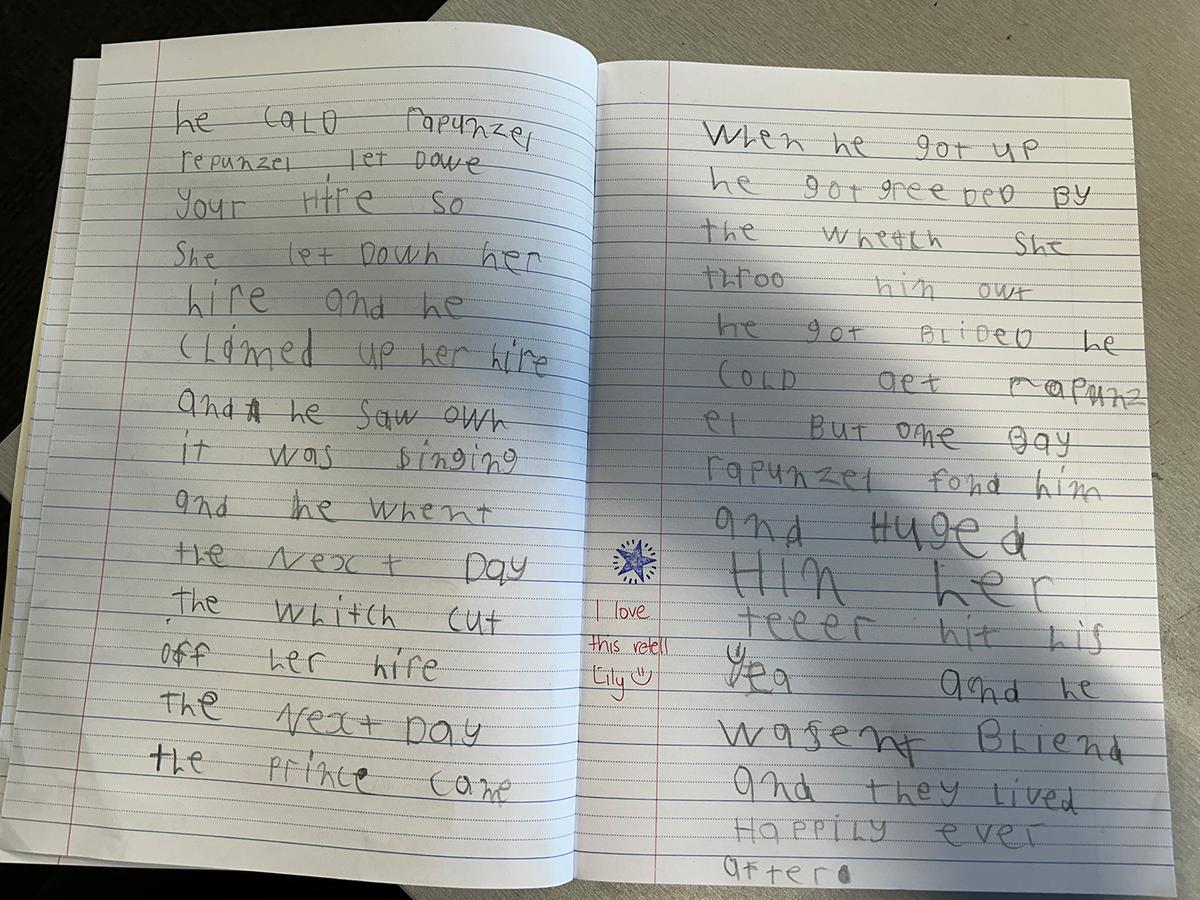 he caLD rapunzel
repunzel let Dowe
your Hire so
She let Down her
hire and he
CLamed up her hire
and he saw own
it was singing
and he whent
the Next Day
the whitch cut
off her hire
the Next Day
the prince came
I love
this retell
Lily
When he got up
he got greeDeD By
the whetch She
throo him out
he got BLiDeD he
COLD get rapunz
el But one Day
rapunzel fond him
and Huged
HIM her
teeer hit his
Yea and he
wasent BLiend
and they Lived
HappiLy ever
after.